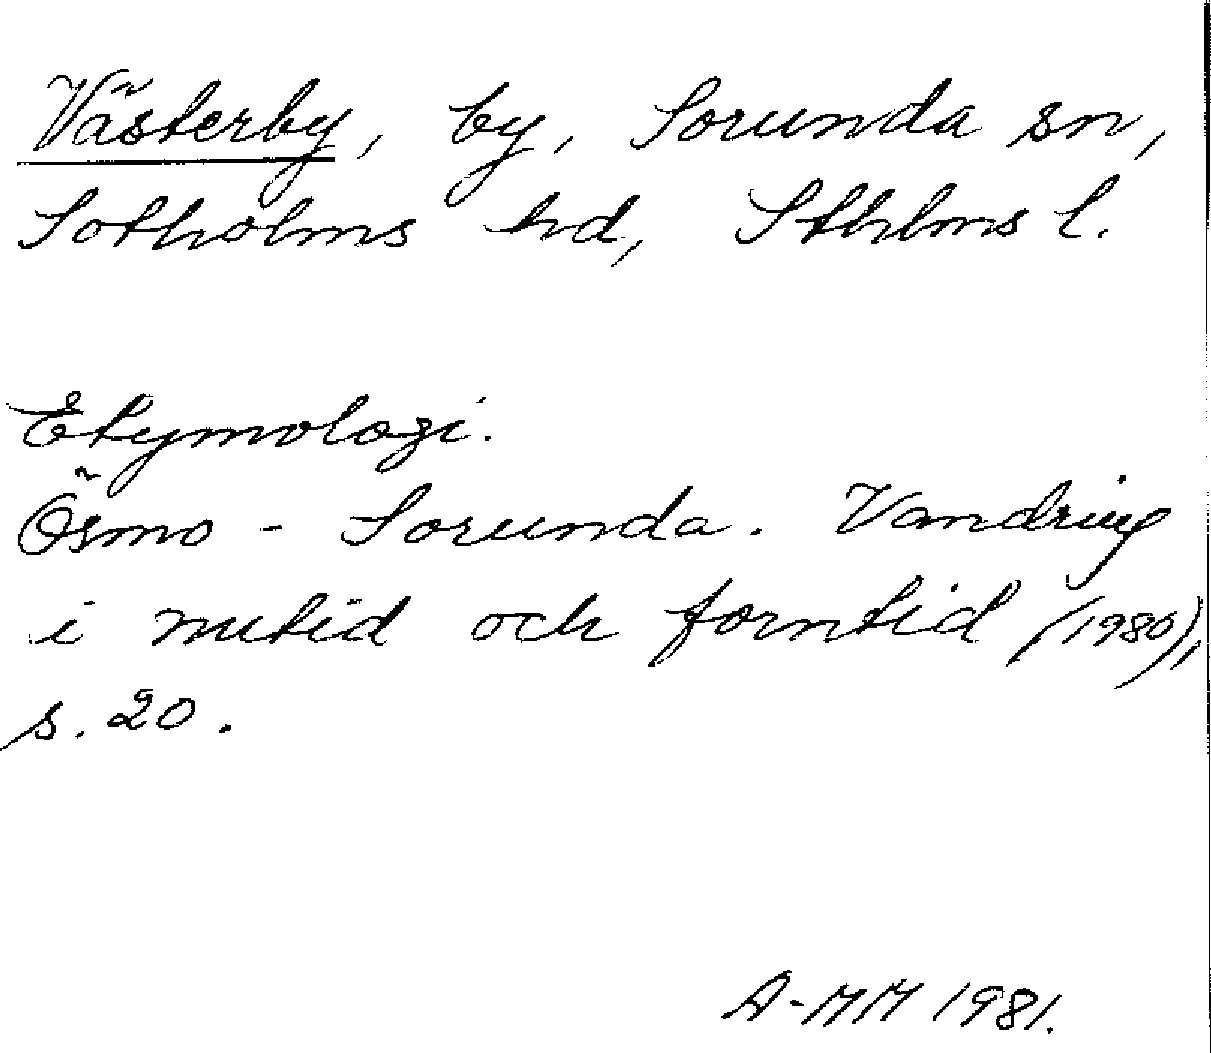 Västerby, by, Sorunda sn,
Sotholms hd, Sthlms l.
Etymologi.
Ösmo - Sorunda. Vandring
i nutid och forntid (1980),
s. 20.
A-MM 1981.